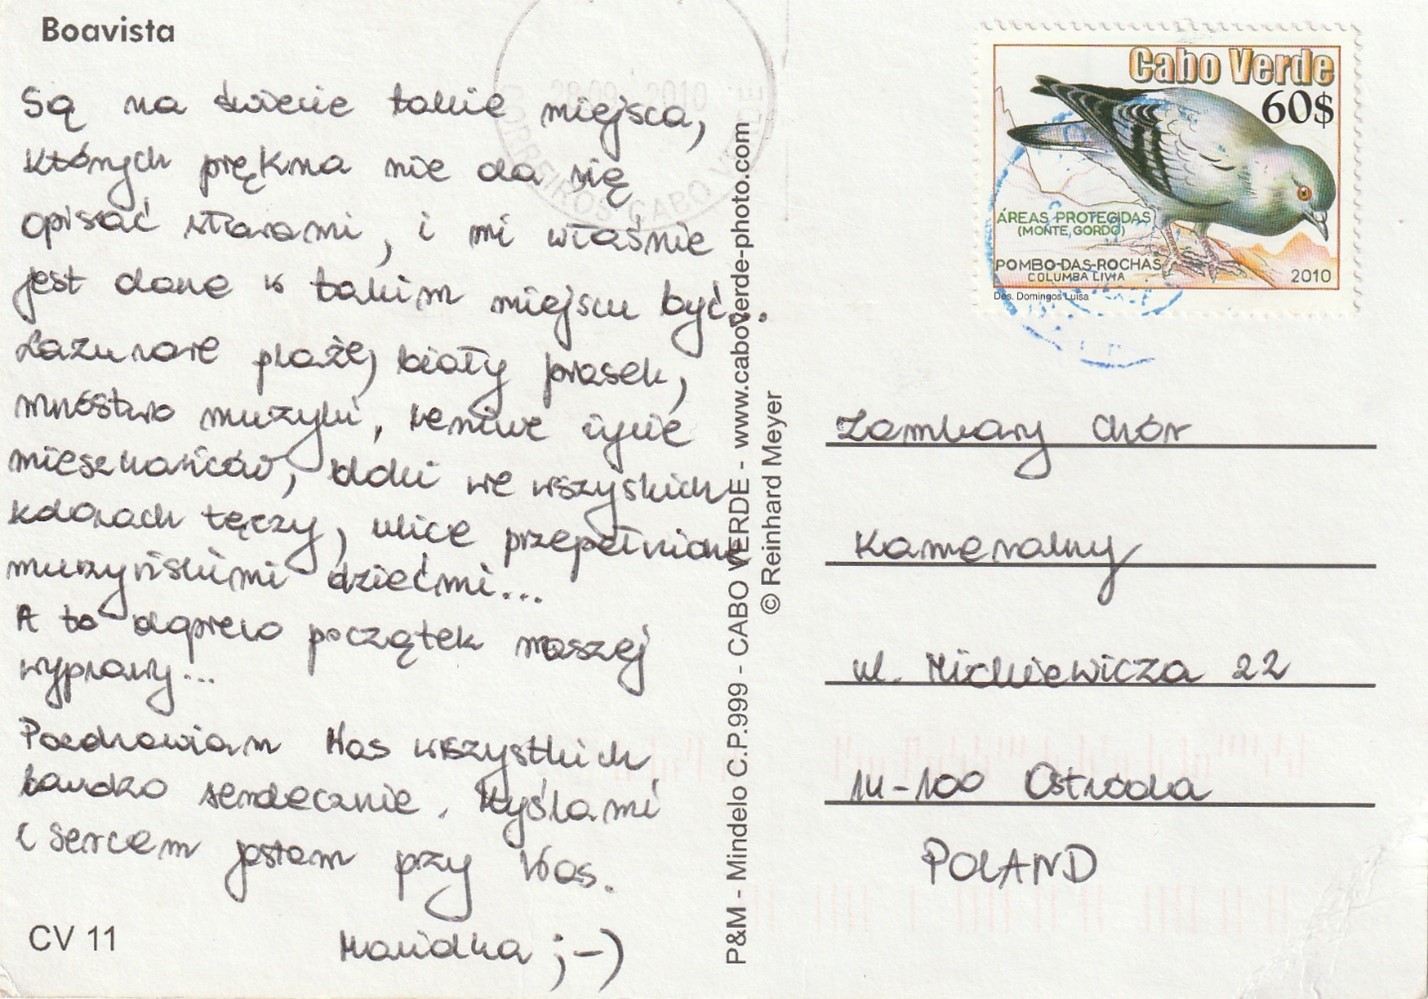 Boavista
Są na świecie takie miejsca,
których piękna nie da się
opisać słowami, i mi właśnie
jest dane w takim miejscu być...
Lazurowe plaże, biały piasek,
mnóstwo muzyki, leniwe życie
mieszkańców, domki we wszyskich
kolorach tęczy, ulice przepełnione
murzyńskimi dziećmi...
A to dopiero początek naszej
wyprawy...
Pozdrawiam Was wszystkich
bardzo serdecznie. Myślami
i sercem jestem przy Was.
Mariolka ;-)
CV 11
P&M - Mindelo C.P.999 - CABO VERDE - www.caboverde-photo.com
© Reinhard Meyer
28.09. 2010
CORREIROS CABO VERDE
Cabo Verde
60$
ÁREAS PROTEGIDAS
(MONTE GORDO)
POMBO-DAS-ROCHAS
COLUMBA LIVIA
2010
Des. Domingos Luisa
Zamkowy Chór
Kameralny
ul. Mickiewicza 22
14-100 Ostróda
POLAND